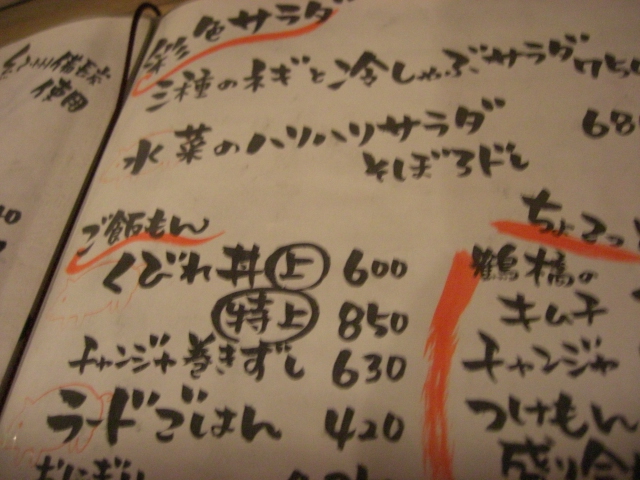 紀州備長炭
使用
彩色サラダ
三種のネギと冷しゃぶサラダ 750
水菜のハリハリサラダ 68
そぼろドレ
ご飯もん
くびれ丼 上 600
特上 850
チャンジャ巻きずし 630
ラードごはん 420
おにぎり
ちょこっ
鶴橋の
キムチ
チャンジャ
つけもん
盛り合